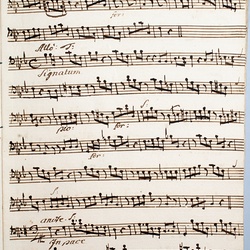 for:
All:º f:
Signatum
f:
sto: for:
for:
f:
andte f:
In pace